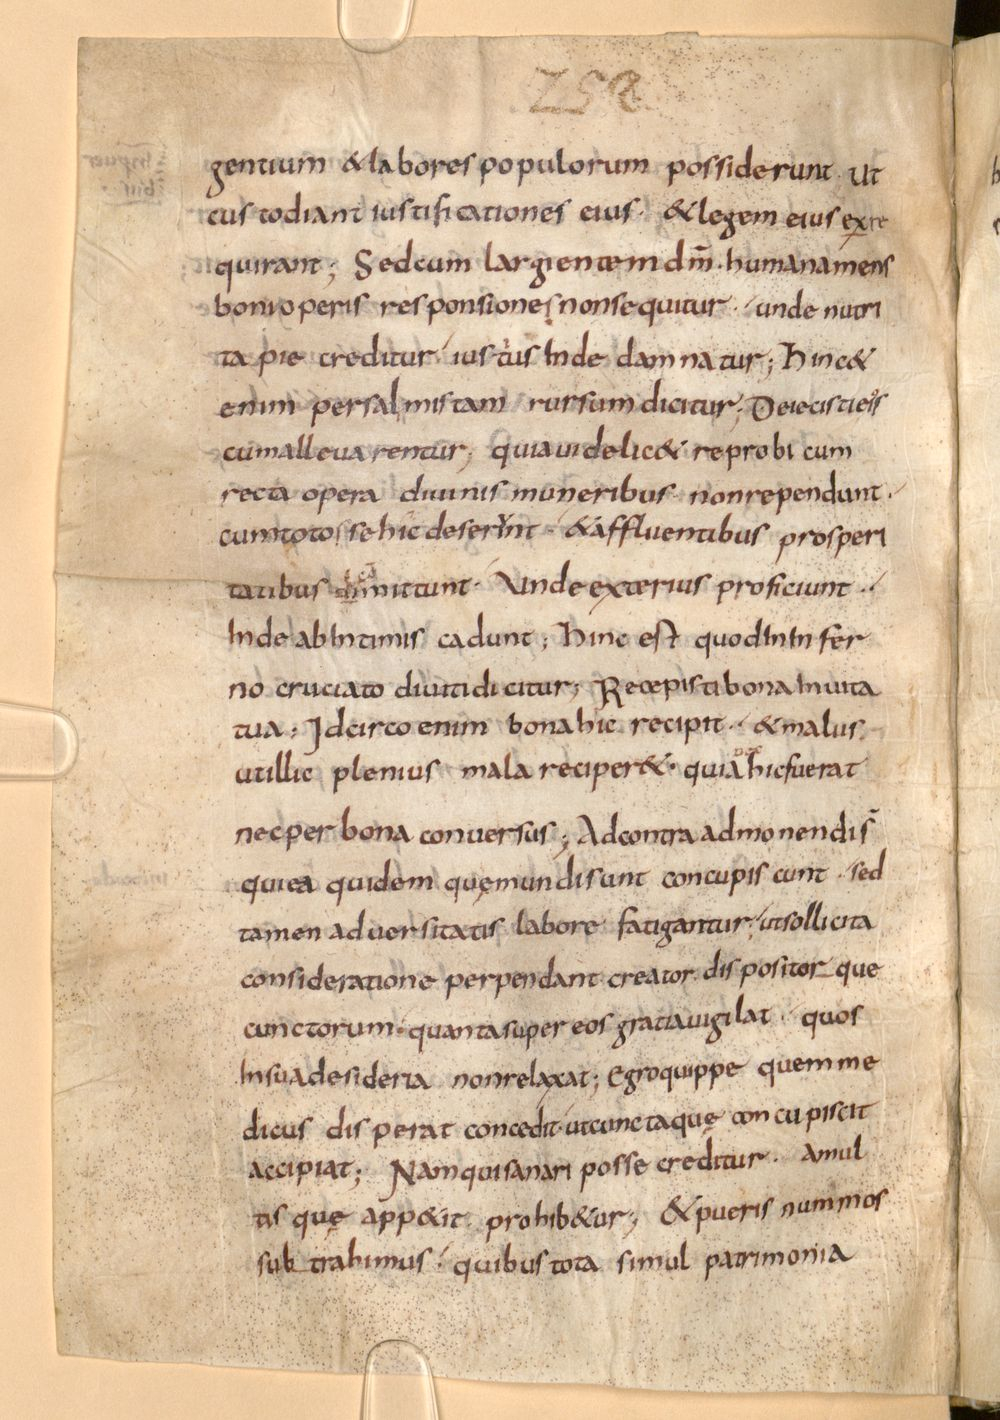 gentium & labores populorum possiderunt ut
custodiant iustificationes eius· & legem eius exre
quirant; Sed cum largientem dm̄· humana mens
boni operis responsione non sequitur· unde nutri
ta pie creditur iuste inde damnatur; Hinc &
enim per salmistam rursum dicitur; Deiecisti eos
cum allevarentur; quia videlic& reprobi cum
recta opera divinis muneribus non rependunt·
cum totos se hic deserunt· & affluentibus prosperi
tatibus dimittunt· Unde exterius proficiunt·
inde ab intimis cadunt; Hinc est quod in infer
no cruciato diviti dicitur; Recepisti bona in vita
tua; Idcirco enim bona hic recipit· & malus
ut illic plenius mala reciper&· quia hic fuerat
nec per bona conversus; Ad contra admonendi s̄
qui ea quidem quę mundi sunt concupiscunt· sed
tamen adversitatis labore fatigantur· ut sollicita
consideratione perpendant creator dispositorque
cunctorum· quanta super eos gratia vigilat· quos
in sua desideria non relaxat; Egro quippe quem me
dicus disperat concedit· ut cuncta quę concupiscit
accipiat; Nam qui sanari posse creditur· a mul
tis quę app&it prohib&ur; & pueris nummos
subtrahimus· quibus tota simul patrimonia